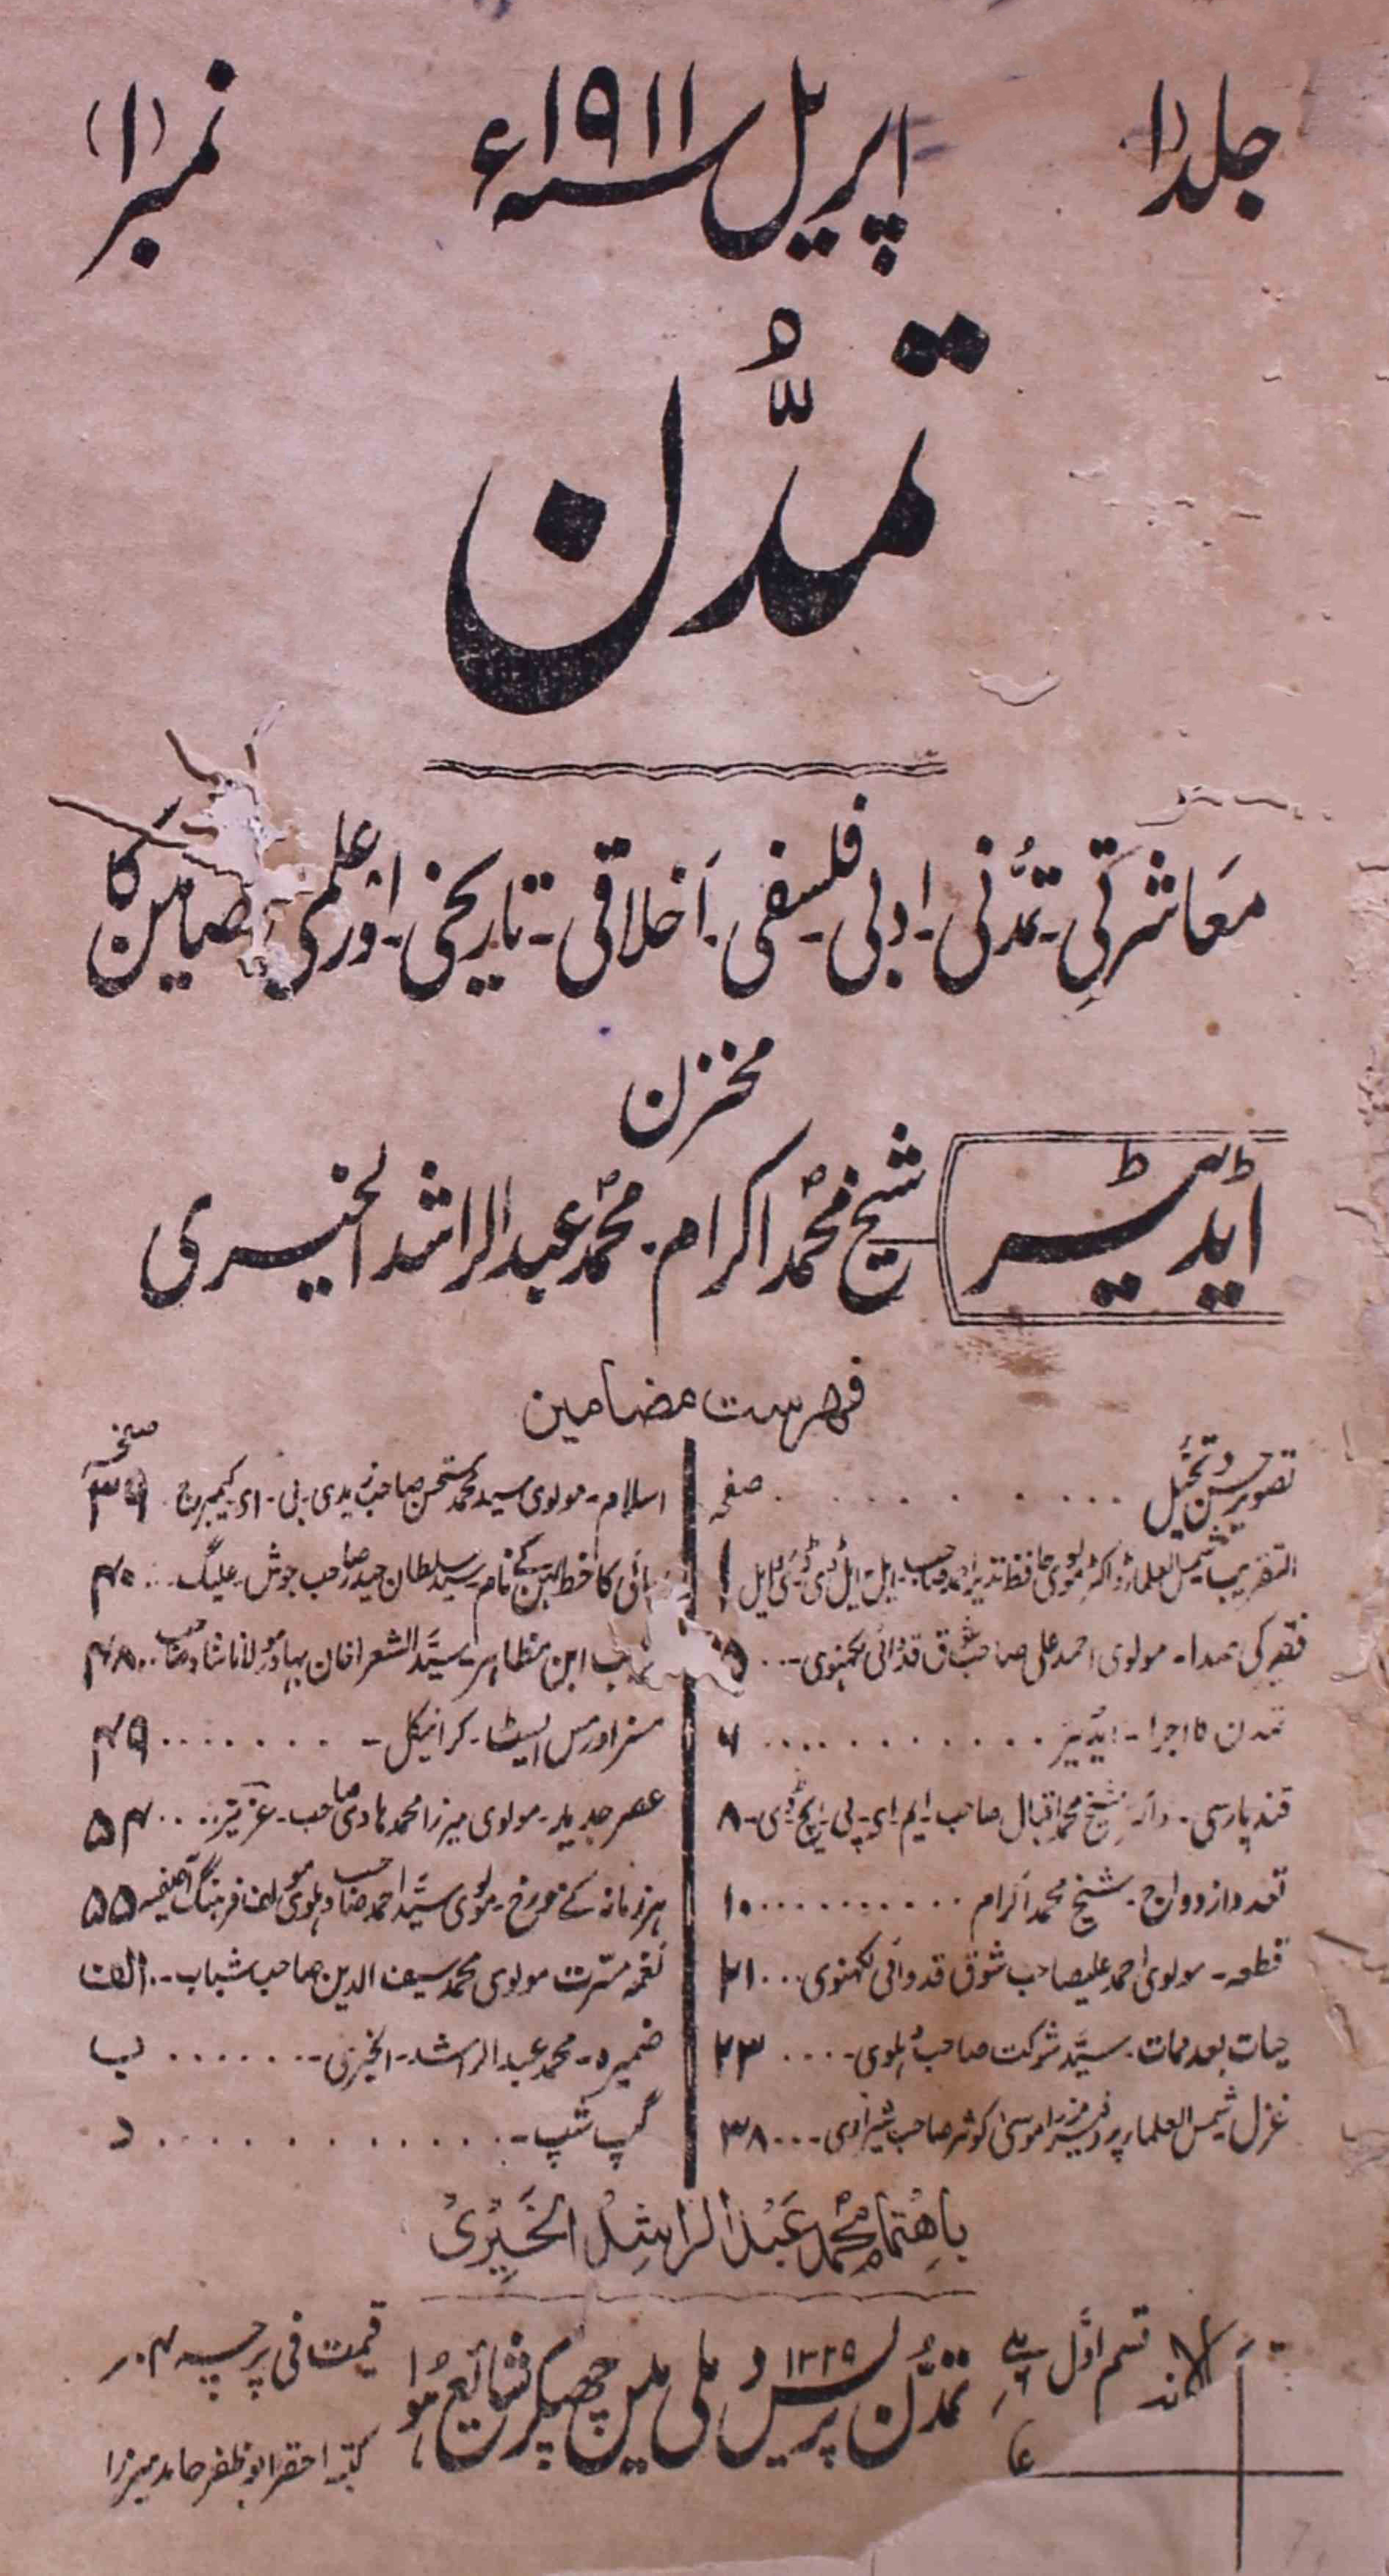 جلد (۱)
اپریل سنہ ۱۹۱۱ء
نمبر (۱)
تمدُّن
معاشرتی ۔ تمدُّنی ۔ ادبی ۔ فلسفی ۔ اخلاقی ۔ تاریخی ۔ اور علمی مضامین کا
مخزن
ایڈیٹر
شیخ محمد اکرام ۔ محمد عبدالراشد الخیری
فہرست مضامین
تصویر حسن و تخیل . . . . . . . . صفحہ
التقریب شمس العلما ڈاکٹر مولوی حافظ نذیر احمد صاحب ۔ ایل ایل ڈی ۔ ڈی او ایل ۱
فقیر کی صدا ۔ مولوی احمد علی صاحب شوق قدوائی لکھنوی ۔ . . ۵
تمدن کا اجرا ۔ ایڈیٹر . . . . . . . . . ۶
قند پارسی ۔ ڈاکٹر شیخ محمد اقبال صاحب ۔ ایم ۔ اے ۔ پی ۔ ایچ ڈی ۔ ۸
تعدد ازدواج ۔ شیخ محمد اکرام . . . . . . . . . ۱۰
قطعہ ۔ مولوی احمد علیصاحب شوق قدوائی لکھنوی . . . ۲۱
حیات بعد ممات ۔ سید شوکت صاحب دہلوی ۔ . . . ۲۳
غزل شمس العلما پروفیسر مرزا موسی کوثر صاحب شیرازی ۔ . . . ۳۸
صفحہ
اسلام ۔ مولوی سید محمد مستحسن صاحب زیدی ۔ بی ۔ اے کیمبرج . ۳۹
بھائی کا خط بہن کے نام ۔ سید سلطان حیدر صاحب جوش ۔ علیگ . . . ۴۰
ابن مظاہر ۔ سیّد الشعرا خان بہادر مولانا شاد صاحب . . ۴۸
مسز اور مس ایسیٹا ۔ کرانیکل ۔ . . . . . . . ۴۹
عصر جدید ۔ مولوی میرزا محمد ہادی صاحب ۔ عزیز . . . . ۵۴
ہر زمانہ کے مورخ ۔ مولوی سیّد احمد صاحب دہلوی مولف فرہنگ آصفیہ ۵۵
نغمہ مسرّت مولوی محمد سیف الدین صاحب شباب ۔ . الف
ضمیرہ ۔ محمد عبدالراشد ۔ الخیری ۔ . . . . . . ب
گپ شپ ۔ . . . . . . . . . . . . د
باہتمام محمد عبدالراشد الخیری
قسم اوّل
تمدُّن پریس دہلی میں چھپکر شائع ہوا
۱۳۲۵
قیمت فی پرچہ ۴ر
کتبہ احقر ابو ظفر حامد میرزا